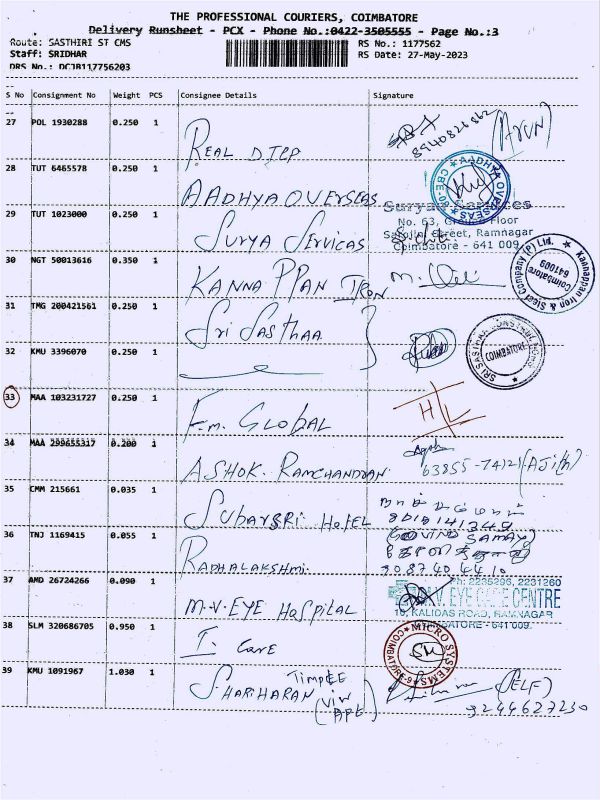 THE PROFESSIONAL COURIERS, COIMBATORE
Delivery Runsheet - PCX - Phone No.:0422-3505555 - Page No.:3
Route: SASTHIRI ST CMS
RS No.: 1177562
Staff: SRIDHAR
RS Date: 27-May-2023
DRS No.: DCJB117756203
S No Consignment No Weight PCS Consignee Details Signature
27 POL 1930288 0.250 1
REAL DTCP
8940826862 (ARUN)
28 TUT 6465578 0.250 1
AADHYA OVERSEAS
AADHYA OVERSEAS
29 TUT 1023000 0.250 1
SURYA SERVICAS
Surya Services
No. 63, Ground Floor
Sarojini Street, Ramnagar
Coimbatore - 641 009
30 NGT 50013616 0.350 1
KANNAPPAN IRON
Kannappan Iron & Steel Company (P) Ltd.
Coimbatore
641009
31 TMG 200421561 0.250 1
Sri SASTHAA
32 KMU 3396070 0.250 1
SRI SASTHAA CONSTRUCTIONS
COIMBATORE
33 MAA 103231727 0.250 1
F.m. GLOBAL
H/L
34 MAA 299655317 0.200 1
ASHOK. RAMCHANDRAN
63855-74121 (AJith)
35 CMM 215661 0.035 1
SUBASRI HOTEL
(GOVIND SAMAY)
36 TNJ 1169415 0.055 1
RADHALAKSHMI
9087404410
37 AMD 26724266 0.090 1
M.V. EYE HOSPITAL
Ph: 2235296, 2231260
M.V. EYE CARE CENTRE
10, KALIDAS ROAD, RAMNAGAR
COIMBATORE - 641 009.
38 SLM 320686705 0.950 1
I Care
MICRO SYSTEMS
COIMBATORE-9
39 KMU 1091967 1.030 1
S HARIHARAN
(SELF)
9244627230